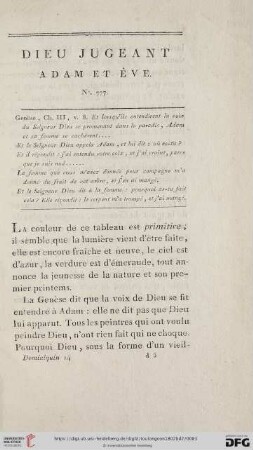 DIEU JUGEANT
ADAM ET ÈVE.
Genèse, Ch. III, v. 8. Et lorsqu'ils entendirent la voix
du Seigneur Dieu se promenant dans le paradis, Adam
et sa femme se cachèrent....
Et le Seigneur Dieu appela Adam, et lui dit : où
Et il répondit : j'ai entendu votre voix, et j'ai craint, parce
que je suis nud......
La femme que vous m'avez donnée pour compagne m'a
donné du fruit de cet arbre, et j'en ai mangé.
Et le Seigneur Dieu dit à la femme : pourquoi avez fait
cela ? Elle répondit : le serpent m'a trompé, et j'ai mangé.
LA couleur de ce tableau est primitive ;
il semble que la lumière vient d'être faite,
elle est encore fraîche et neuve, le ciel est
d'azur, la verdure est d'émeraude, tout an-
nonce la jeunesse de la nature et son pre-
mier printems.
La Genèse dit que la voix de Dieu se fit
entendre à Adam : elle ne dit pas que Dieu
lui apparut. Tous les peintres qui ont voulu
peindre Dieu, n'ont rien fait qui ne choque.
Pourquoi Dieu, sous la forme d'un vieil-
Dominiquin
UNIVERSITÄTS-
BIBLIOTHEK
HEIDELBERG
Gefördert durch
DFG